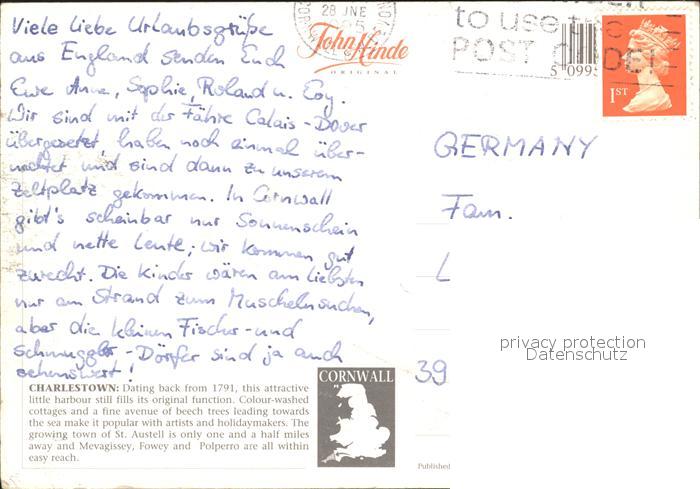 Viele liebe Urlaubsgrüße
aus England senden Euch
Eure Anne, Sophie, Roland u.
Wir sind mit der Fähre Calais-Dover
übergesetzt, haben noch einmal über-
nachtet und sind dann zu unserem
Zeltplatz gekommen. In Cornwall
gibt's scheinbar nur Sonnenschein
und nette Leute; wir kommen gut
zurecht. Die Kinder wären am liebsten
nur am Strand zum Muschelnsuchen,
aber die kleinen Fischer- und
Schmuggler-Dörfer sind ja auch
sehenswert!
CHARLESTOWN: Dating back from 1791, this attractive
little harbour still fills its original function. Colour-washed
cottages and a fine avenue of beech trees leading towards
the sea make it popular with artists and holidaymakers. The
growing town of St. Austell is only one and a half miles
away and Mevagissey, Fowey and Polperro are all within
easy reach.
CORNWALL
28 JNE
John Hinde
ORIGINAL
to use the
POST CODE
5 099
1ST
GERMANY
Fam.
L
39
privacy protection
Datenschutz
Published